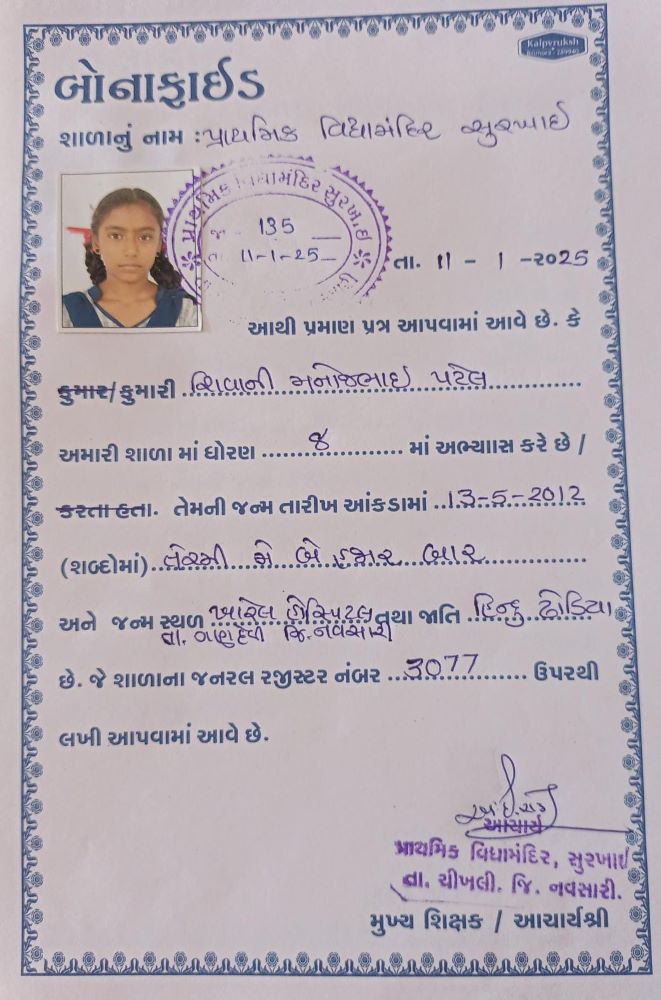 Kalpvruksh
બોનાફાઈડ
શાળાનું નામ : પ્રાથમિક વિદ્યામંદિર સુરખાઈ
પ્રાથમિક વિદ્યામંદિર સુરખાઇ
જા 135
તા 11-1-25
તા. 11 - 1 -૨૦25
આથી પ્રમાણ પત્ર આપવામાં આવે છે. કે
કુમાર/કુમારી શિવાની મનોજભાઇ પટેલ
અમારી શાળા માં ધોરણ ૭ માં અભ્યાસ કરે છે /
કરતા હતા. તેમની જન્મ તારીખ આંકડામાં 13-5-2012
(શબ્દોમાં) તેરમી મે બે હજાર બાર
અને જન્મ સ્થળ ખારેલ હોસ્પિટલ તથા જાતિ હિન્દુ ઢોડિયા
તા. ગણદેવી જિ. નવસારી
છે. જે શાળાના જનરલ રજીસ્ટર નંબર 3077 ઉપરથી
લખી આપવામાં આવે છે.
આચાર્ય
પ્રાથમિક વિદ્યામંદિર, સુરખાઈ
તા. ચીખલી. જિ. નવસારી.
મુખ્ય શિક્ષક / આચાર્યશ્રી